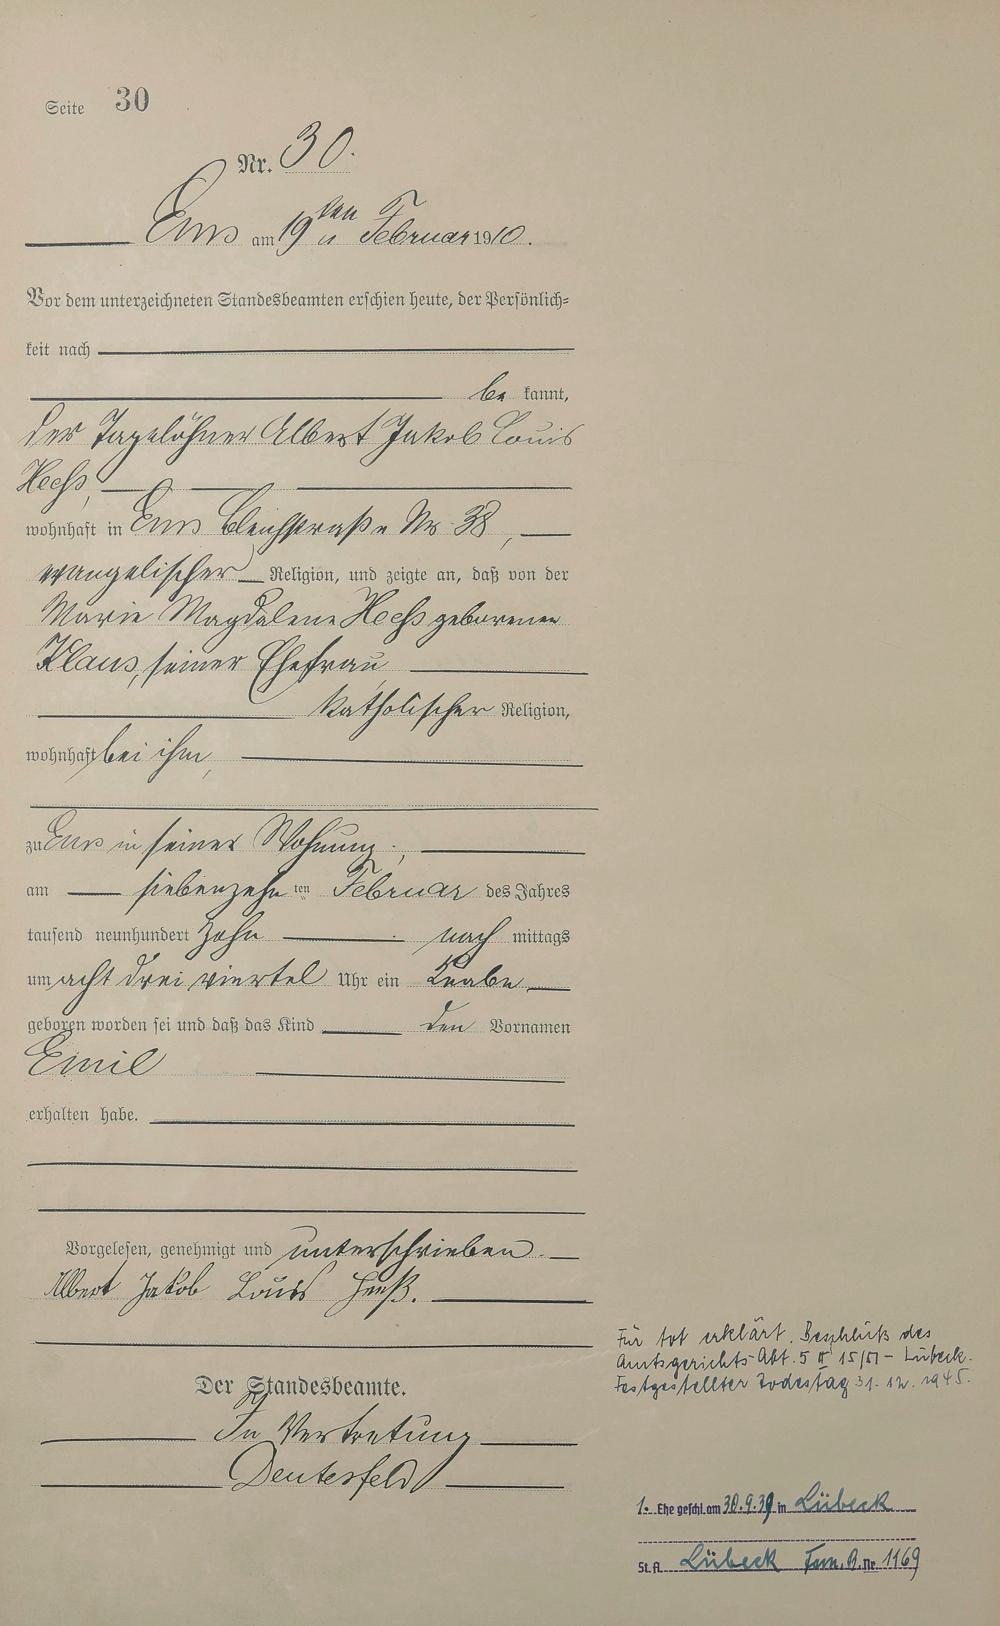 Seite 30
Nr. 30.
Ems am 19ten Februar 1910.
Vor dem unterzeichneten Standesbeamten erschien heute, der Persönlich=
keit nach
be kannt,
der Tagelöhner Albert Jakob Louis
Heeß,
wohnhaft in Ems Bleichstraße Nr. 38,
evangelischer Religion, und zeigte an, daß von der
Marie Magdalene Heeß geborenen
Klaus, seiner Ehefrau
katholischer Religion,
wohnhaft bei ihm,
zu Ems in seiner Wohnung,
am siebenzehn ten Februar des Jahres
tausend neunhundert zehn nach mittags
um acht drei viertel Uhr ein Knabe
geboren worden sei und daß das Kind den Vornamen
Emil
erhalten habe.
Vorgelesen, genehmigt und unterschrieben.
Albert Jakob Louis Heeß.
Der Standesbeamte.
In Vertretung
Deutesfeld
Für tot erklärt. Beschluß des
Amtsgerichts-Abt. 5 II 15/51 – Lübeck.
Festgestellter Todestag 31. 12. 1945.
1. Ehe geschl. am 30.9.39 in Lübeck
St. A. Lübeck Fam. B. Nr. 1169